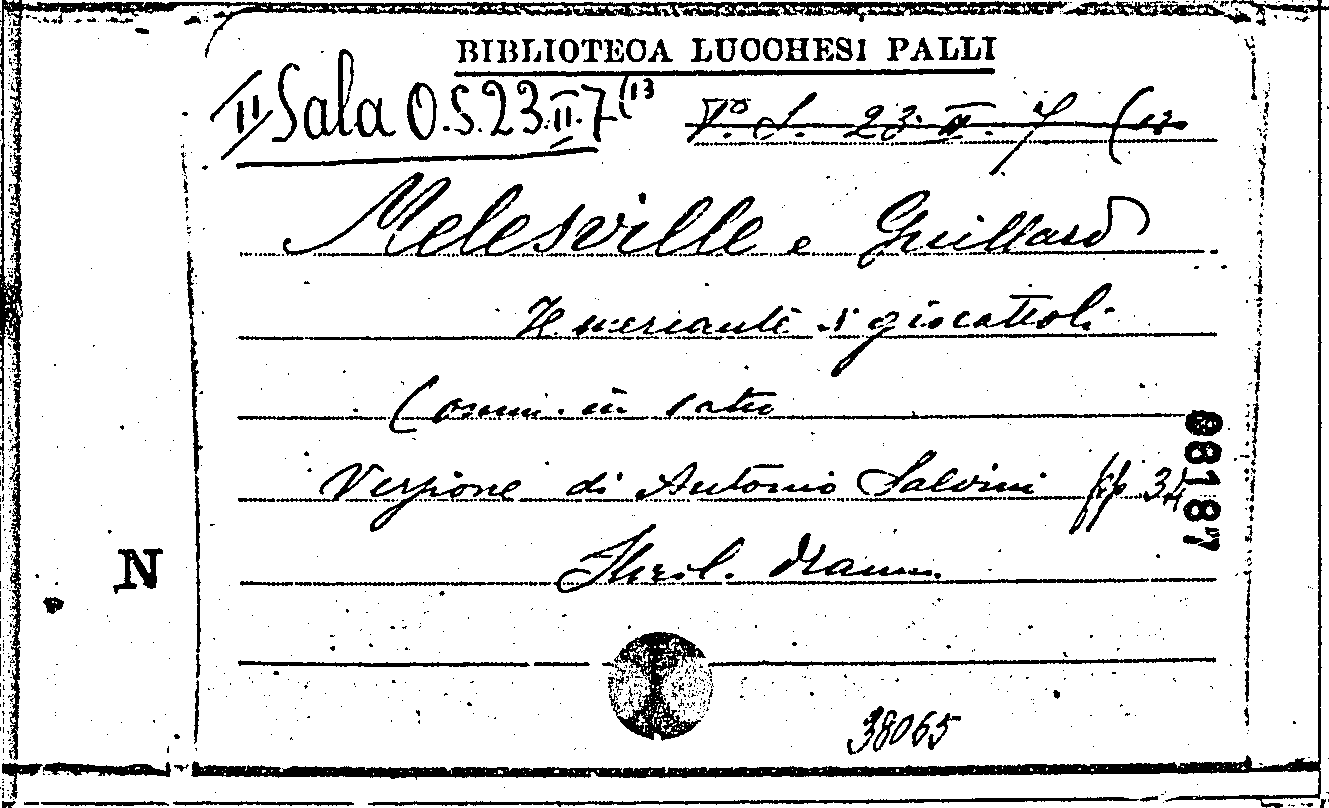 BIBLIOTECA LUCCHESI PALLI
II Sala O.S.23.II.7(13
V.° S. 23. II. 7 (13
Melesville e Guillard
Il mercante di giocattoli
Comm. in 1 atto
Versione di Antonio Salvini pp 34
68187
N
38065